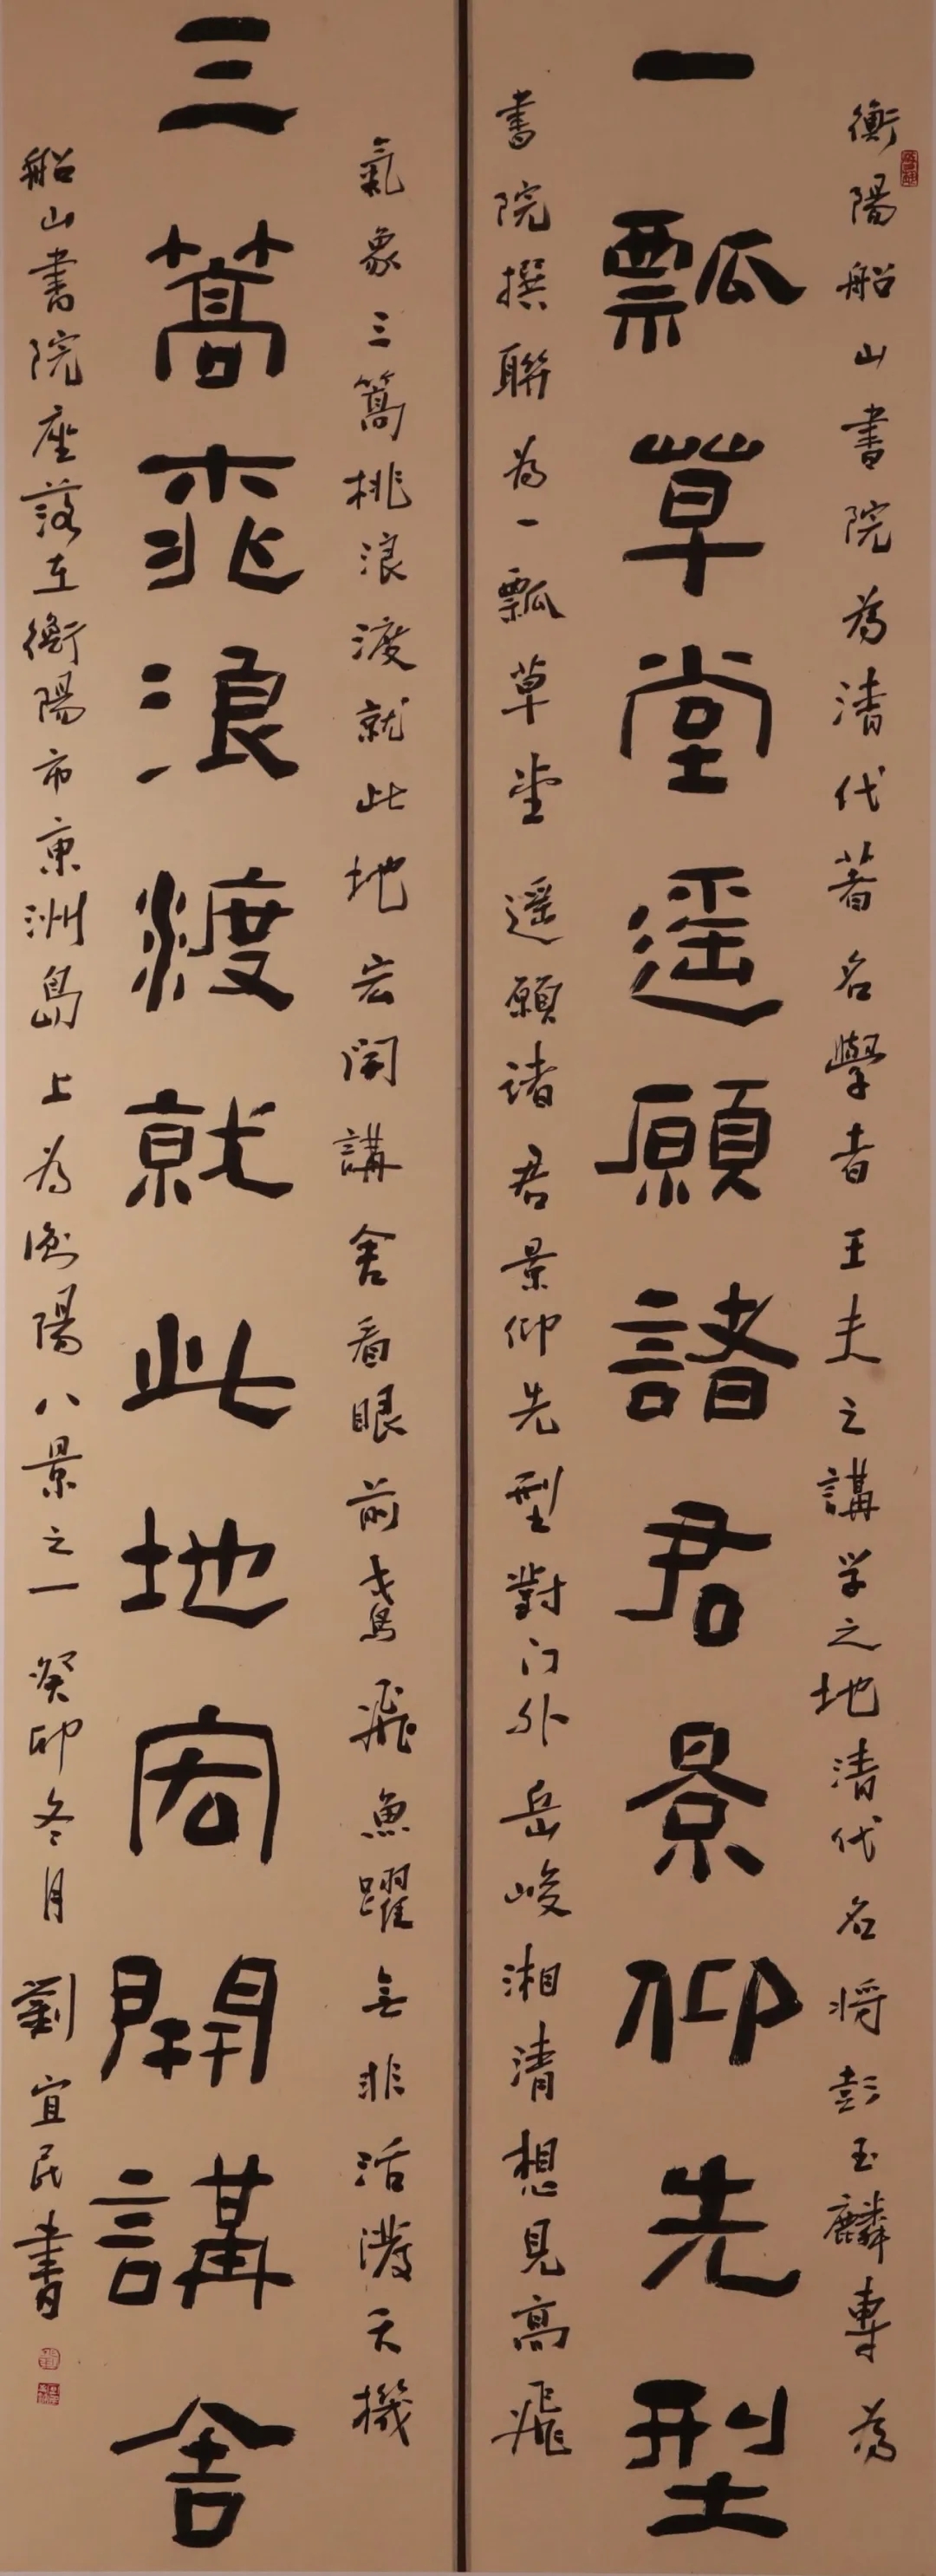 衡陽船山書院為清代著名學者王夫之講学之地清代名将彭玉麟專為
一瓢草堂遥願諸君景仰先型
書院撰聯為一瓢草堂遥願諸君景仰先型對门外岳峻湘清想見高飛
氣象三篙桃浪渡就此地宏開講舍看眼前鳶飛魚躍无非活潑天機
三篙桃浪渡就此地宏開講舍
船山書院座落在衡陽市東洲島上為衡陽八景之一 癸卯冬月 劉宜民書